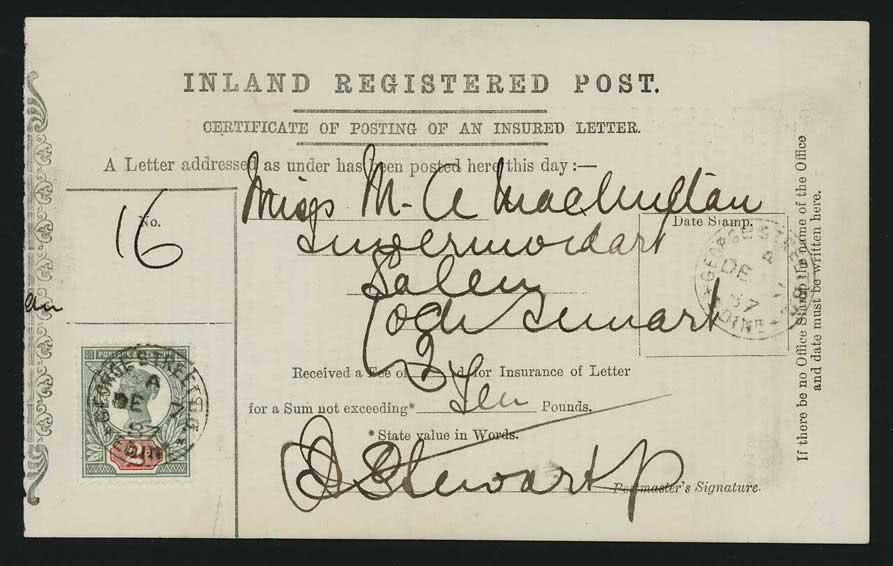 INLAND REGISTERED POST.
CERTIFICATE OF POSTING OF AN INSURED LETTER.
A Letter addressed as under has been posted here this day:—
No.
16
Miss M. A
Date Stamp.
GEORGE STREET
A
DE
87
EDINR
Salen
an
POSTAGE
GEORGE STREET
A
DE
87
EDINR
2
Received a Fee of 2 d for Insurance of Letter
for a Sum not exceeding* Ten Pounds.
*State value in Words.
Stewart
Postmaster's Signature.
If there be no Office Stamp the name of the Office
and date must be written here.